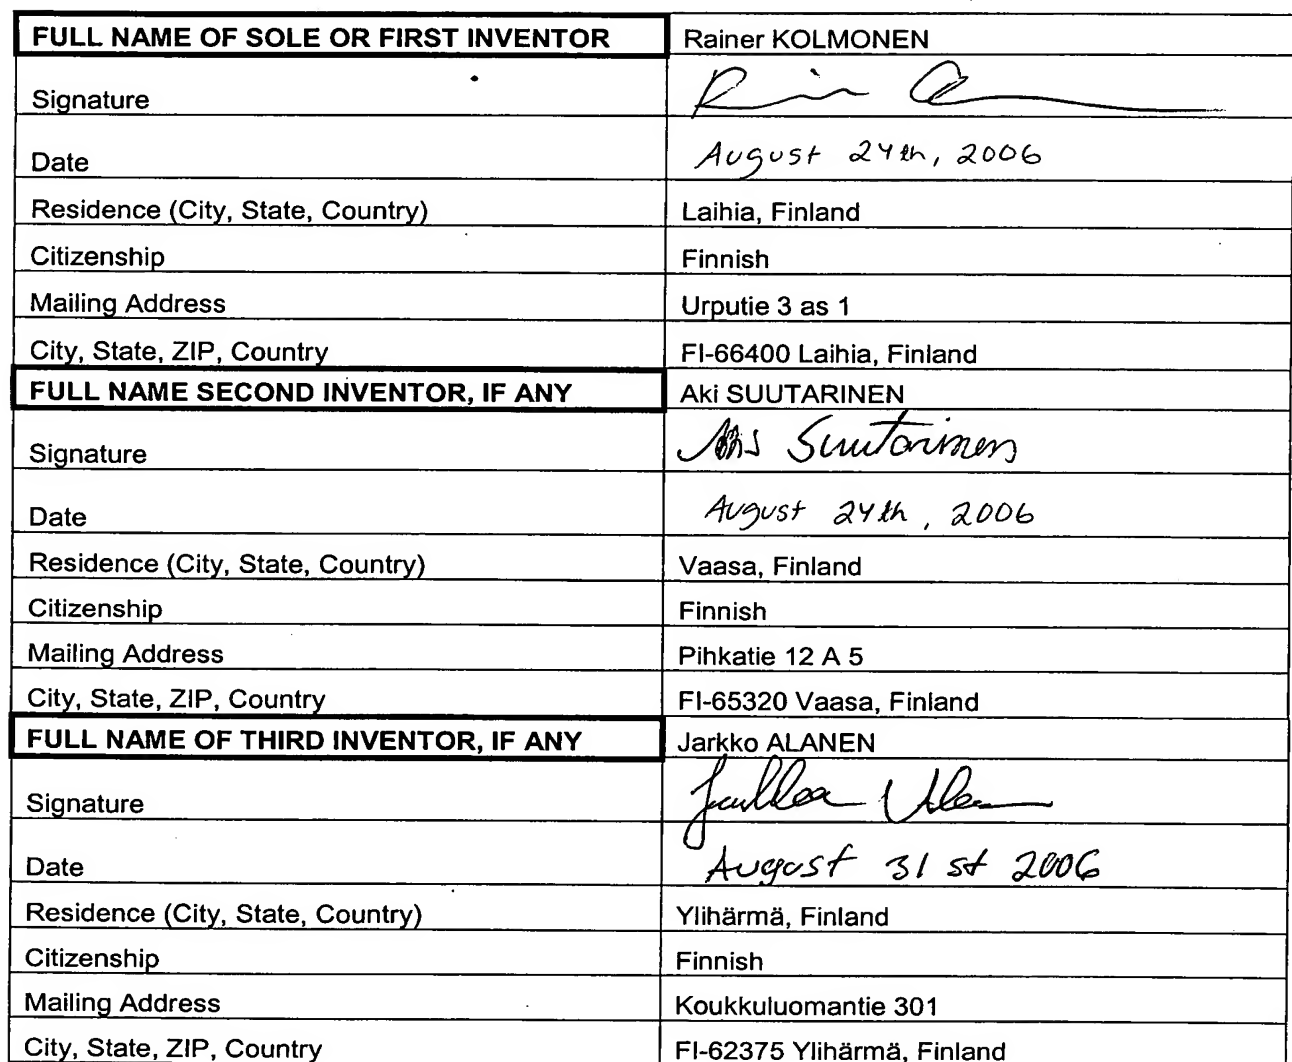 FULL NAME OF SOLE OR FIRST INVENTOR Rainer KOLMONEN
Signature
Date August 24th, 2006
Residence (City, State, Country) Laihia, Finland
Citizenship Finnish
Mailing Address Urputie 3 as 1
City, State, ZIP, Country FI-66400 Laihia, Finland
FULL NAME SECOND INVENTOR, IF ANY Aki SUUTARINEN
Signature Suutarinen
Date August 24th, 2006
Residence (City, State, Country) Vaasa, Finland
Citizenship Finnish
Mailing Address Pihkatie 12 A 5
City, State, ZIP, Country FI-65320 Vaasa, Finland
FULL NAME OF THIRD INVENTOR, IF ANY Jarkko ALANEN
Signature
Date August 31st 2006
Residence (City, State, Country) Ylihärmä, Finland
Citizenship Finnish
Mailing Address Koukkuluomantie 301
City, State, ZIP, Country FI-62375 Ylihärmä, Finland